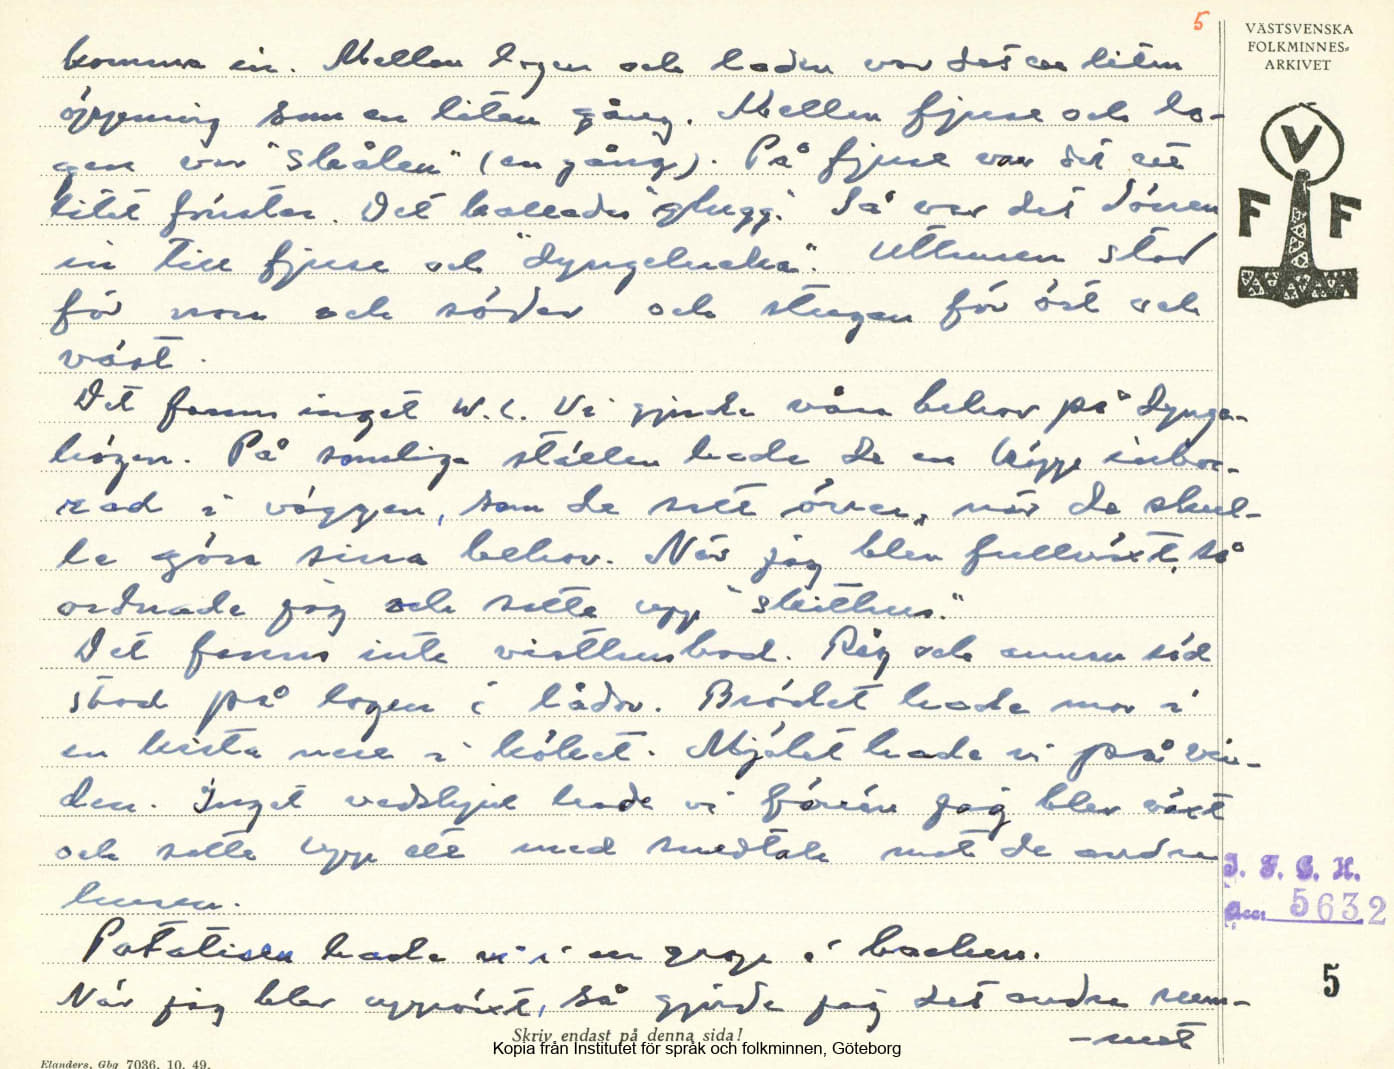 5
VÄSTSVENSKA
FOLKMINNES-
ARKIVET
V
F F
komma in. Mellan logen och ladan var det en liten
öppning som en liten gång. Mellan fjuse och lo-
gen var "skålen" (en gång). På fjuse var det ett
litet fönster. Det kallades "glugg." Så var det dörren
in till fjuse och "dyngelucka". Uthusen stod
för norr och söder och stugan för öst och
väst.
Det fanns inget W.C. Vi gjorde våra behov på dynge-
högen. På somliga ställen hade de en käpp inbor-
rad i väggen, som de satt över, när de skul-
le göra sina behov. När jag blev fullväxt, så
ordnade jag och satte upp "skithus."
Det fanns inte visthusbod. Råg och annan säd
stod på logen i lådor. Brödet hade mor i
en kista nere i köket. Mjölet hade vi på vin-
den. Inget vedskjul hade vi förrän jag blev växt
och satte upp ett med snedtak mot de andra
husen.
Potatisen hade vi i en grop i backen.
När jag blev uppväxt, så gjorde jag det andra rum-
-met
Skriv endast på denna sida!
Kopia från Institutet för språk och folkminnen, Göteborg
Elanders, Gbg 7036. 10. 49.
I. F. G. H.
Acc: 5632
5